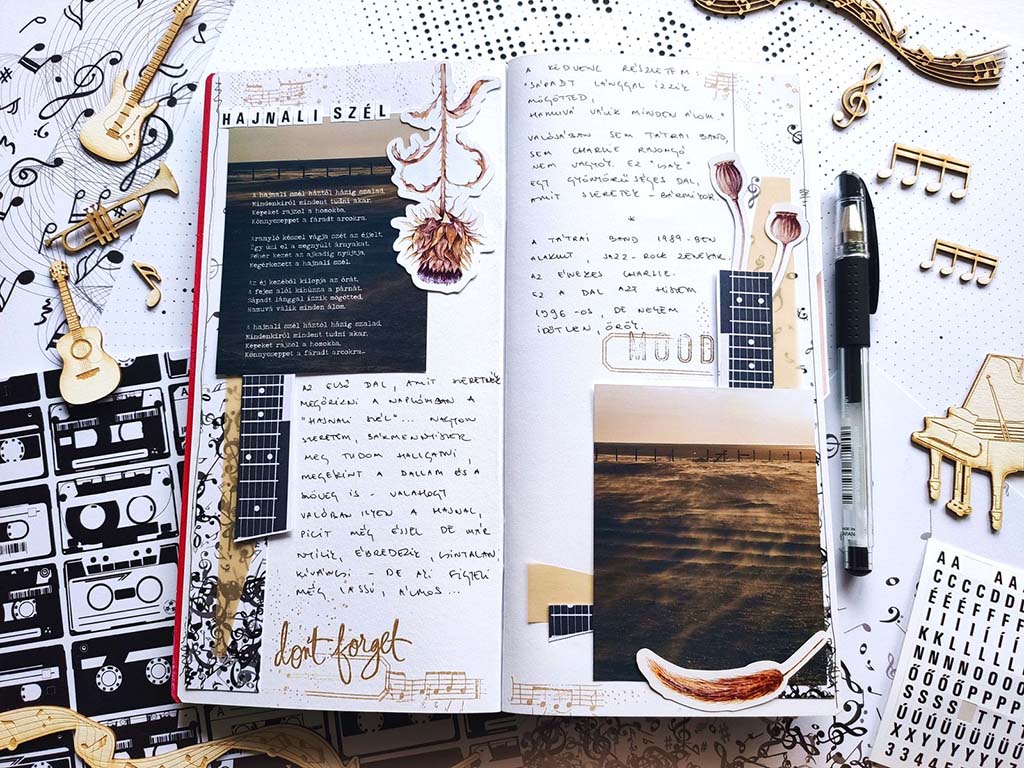 HAJNALI SZÉL
A hajnali szél háztól házig szalad,
Mindenkiről mindent tudni akar.
Képeket rajzol a homokba,
Könnycseppet a fáradt arcokra.
Aranyló késsel vágja szét az éjjelt,
Így űzi el a megnyúlt árnyakat.
Fehér kezét az ajkadig nyújtja,
Megérkezett a hajnali szél.
Az éj kezéből kilopja az órát,
A fejem alól kihúzza a párnát.
Sápadt lánggal izzik mögötted,
Hamuvá válik minden álom.
A hajnali szél háztól házig szalad,
Mindenkiről mindent tudni akar.
Képeket rajzol a homokba,
Könnycseppet a fáradt arcokra.
AZ ELSŐ DAL, AMIT SZERETNÉK
MEGŐRIZNI A NAPLÓMBAN A
"HAJNALI SZÉL"... NAGYON
SZERETEM, BÁRMENNYISZER
MEG TUDOM HALLGATNI,
MEGÉRINT A DALLAM ÉS A
SZÖVEG IS - VALAHOGY
VALÓBAN ILYEN A HAJNAL,
PICIT MÉG ÉJJEL DE MÁR
NYÍLIK, ÉBREDEZIK, CSINTALAN,
KÍVÁNCSI - DE AKI FIGYELI
MÉG LASSÚ, ÁLMOS...
don't forget
A KEDVENC RÉSZLETEM:
"SÁPADT LÁNGGAL IZZIK
MÖGÖTTED,
HAMUVÁ VÁLIK MINDEN ÁLOM."
VALÓJÁBAN SEM TÁTRAI BAND,
SEM CHARLIE RAJONGÓ
NEM VAGYOK. EZ "CSAK"
EGY GYÖNYÖRŰSÉGES DAL,
AMIT SZERETEK BÁRMIKOR.
*
A TÁTRAI BAND 1989-BEN
ALAKULT JAZZ-ROCK ZENEKAR.
AZ ÉNEKES CHARLIE.
EZ A DAL AZT HISZEM
1996-OS, DE NEKEM
IDŐTLEN, ÖRÖK.
MOOD